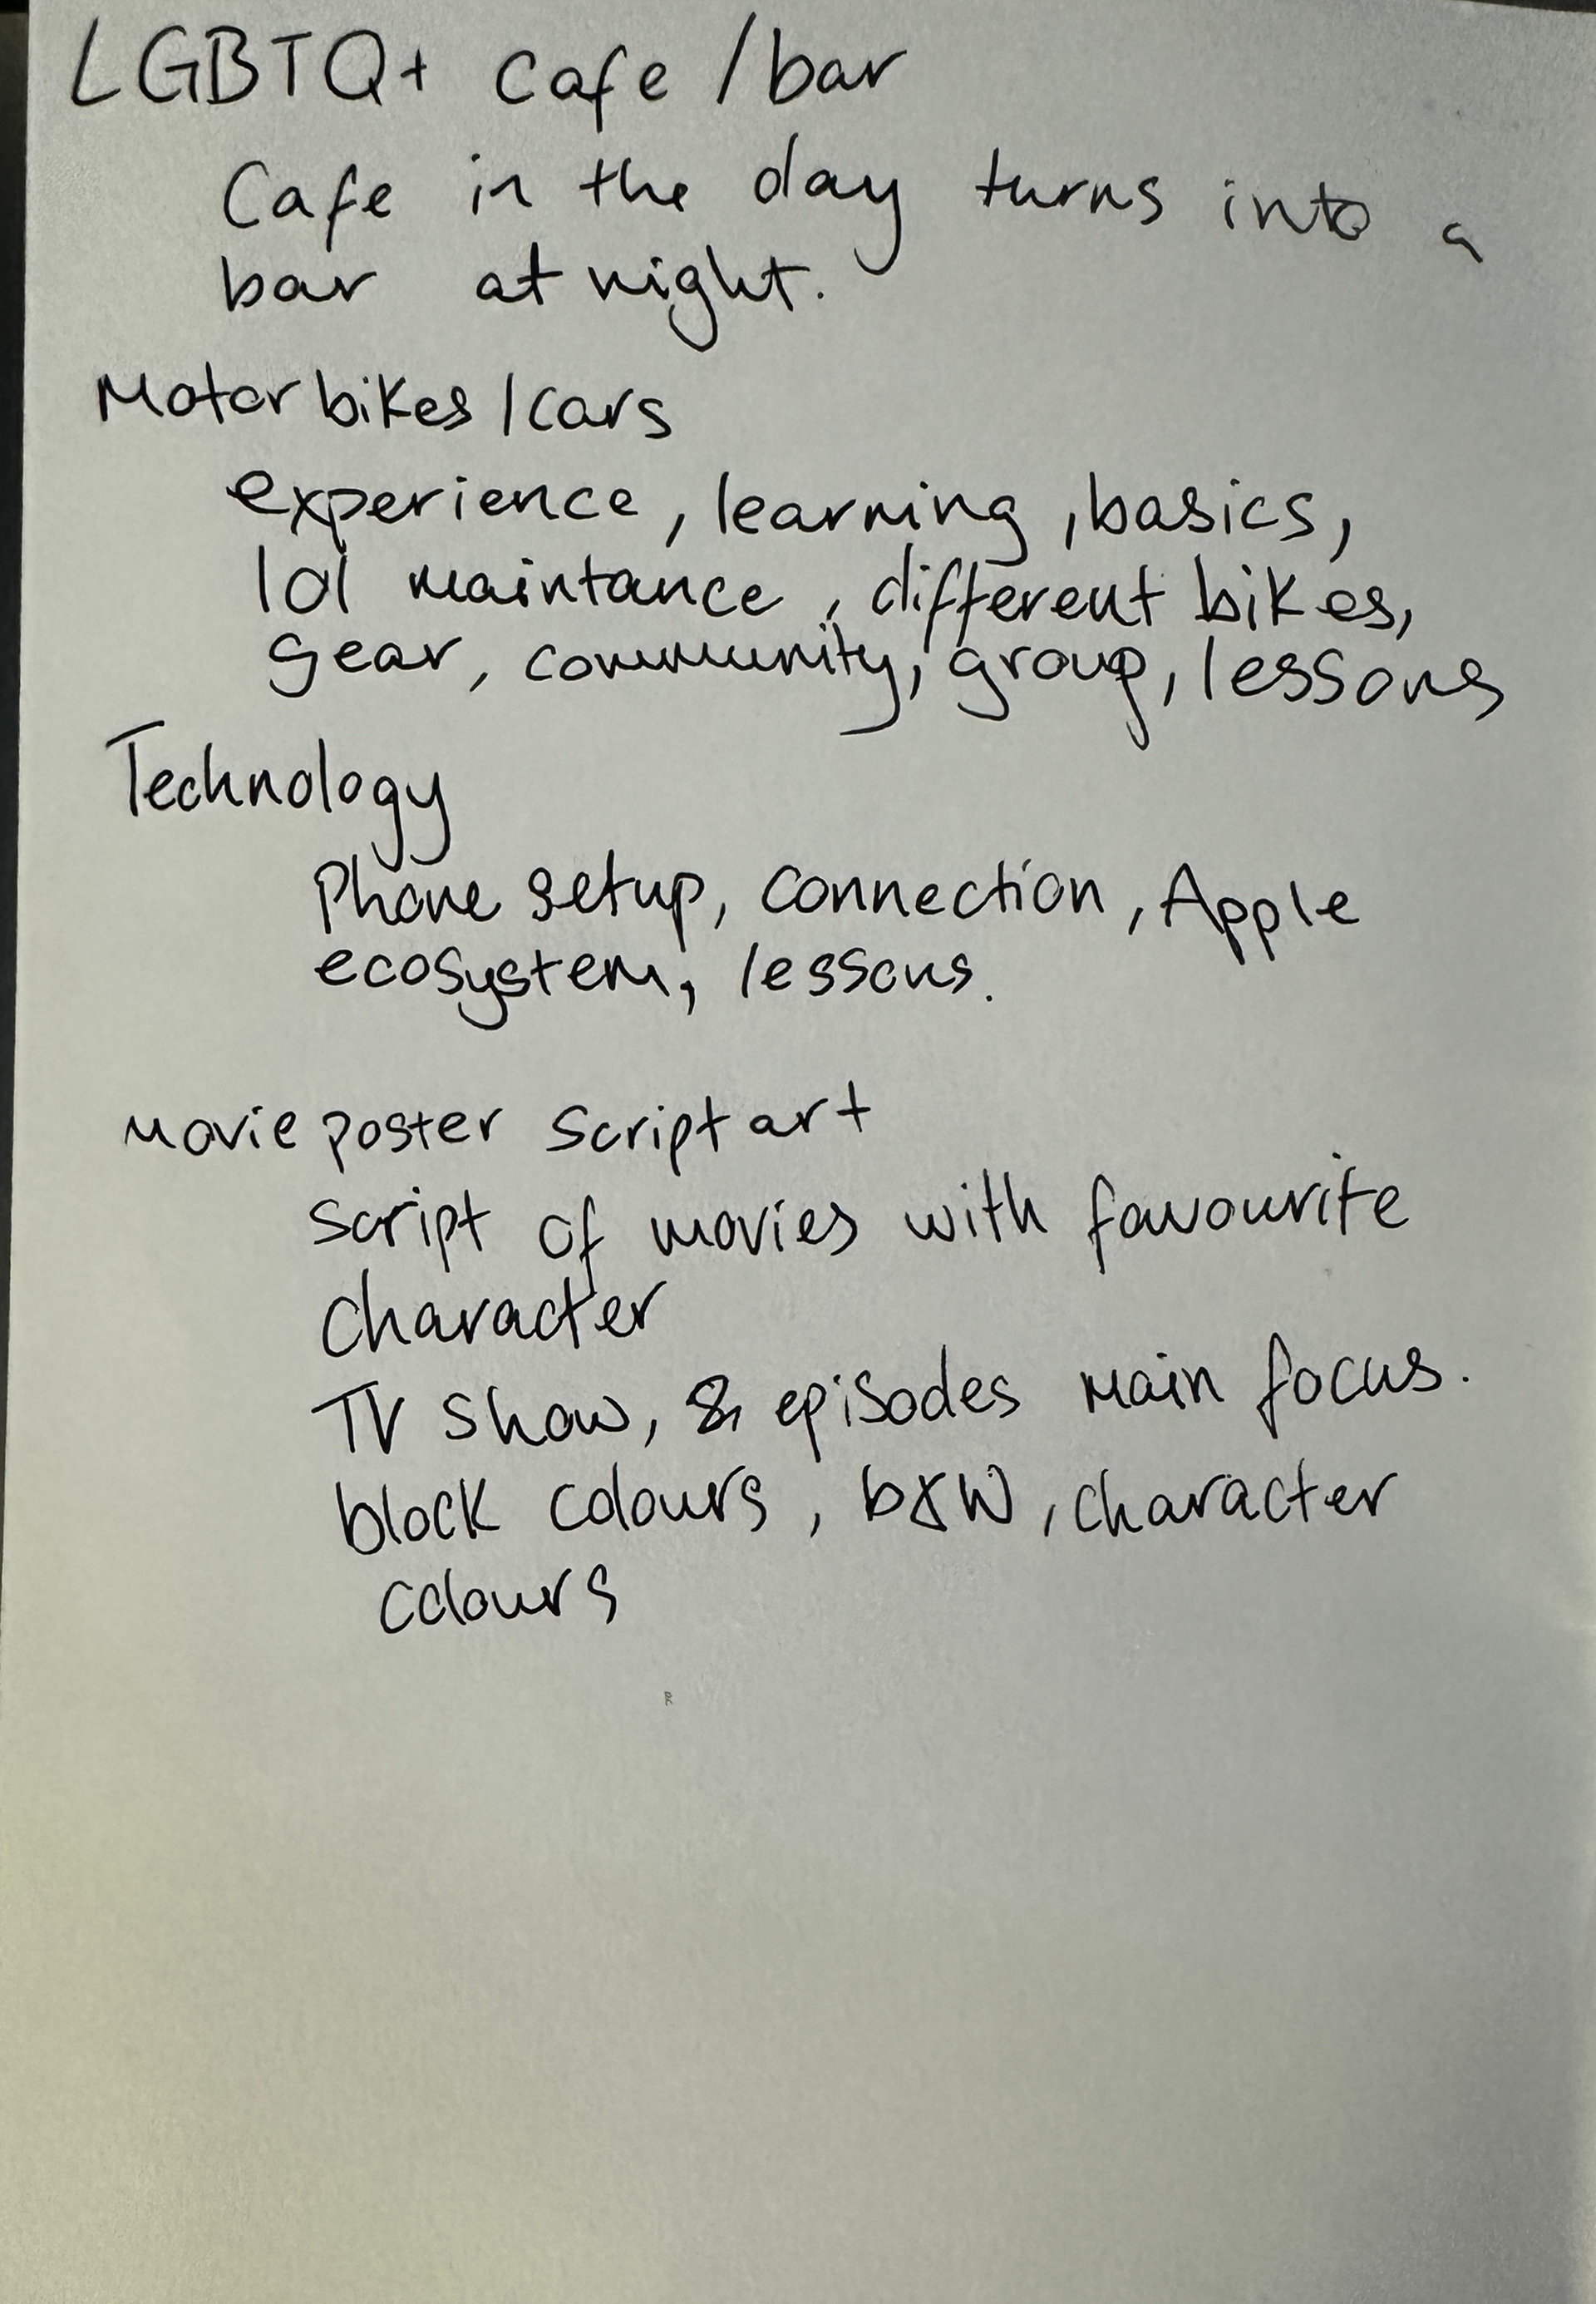 LGBTQ+ cafe / bar
Cafe in the day turns into a
bar at night.
Motorbikes / cars
experience, learning, basics,
101 maintance, different bikes,
gear, community, group, lessons
Technology
Phone setup, connection, Apple
ecosystem, lessons.
Movie poster script art
Script of movies with favourite
character
TV show, & episodes main focus.
block colours, b&W, character
colours